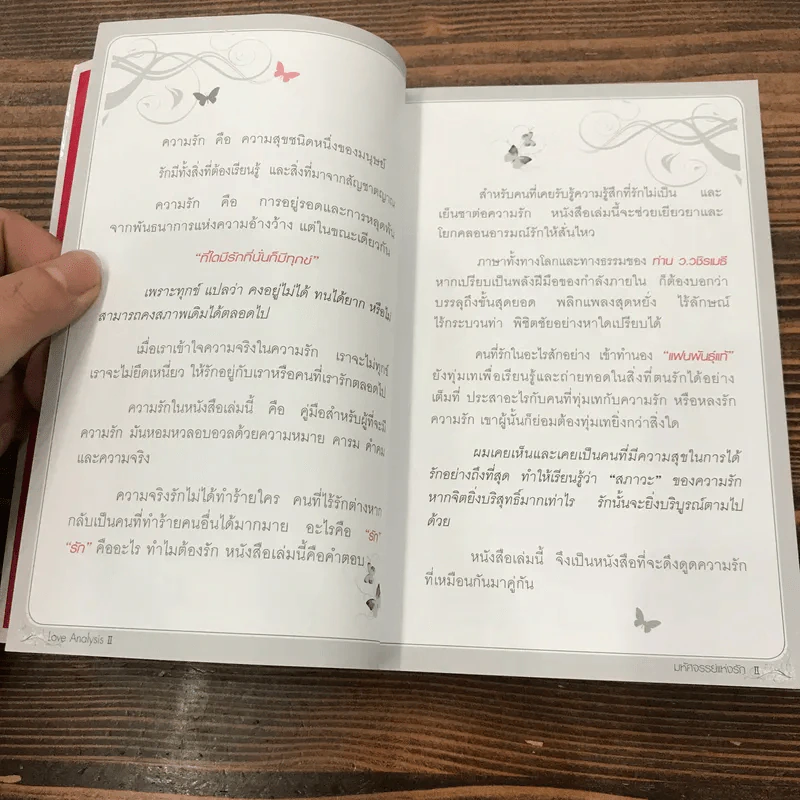 ความรัก คือ ความสุขชนิดหนึ่งของมนุษย์
รักมีทั้งสิ่งที่ต้องเรียนรู้ และสิ่งที่มาจากสัญชาตญาณ
ความรัก คือ การอยู่รอดและการหลุดพ้น
จากพันธนาการแห่งความอ้างว้าง แต่ในขณะเดียวกัน
"ที่ใดมีรักที่นั่นก็มีทุกข์"
เพราะทุกข์ แปลว่า คงอยู่ไม่ได้ ทนได้ยาก หรือไม่
สามารถคงสภาพเดิมได้ตลอดไป
เมื่อเราเข้าใจความจริงในความรัก เราจะไม่ทุกข์
เราจะไม่ยึดเหนี่ยว ให้รักอยู่กับเราหรือคนที่เรารักตลอดไป
ความรักในหนังสือเล่มนี้ คือ คู่มือสำหรับผู้ที่จะมี
ความรัก มันหอมหวลอบอวลด้วยความหมาย คารม คำคม
และความจริง
ความจริงรักไม่ได้ทำร้ายใคร คนที่ไร้รักต่างหาก
กลับเป็นคนที่ทำร้ายคนอื่นได้มากมาย อะไรคือ "รัก"
"รัก" คืออะไร ทำไมต้องรัก หนังสือเล่มนี้คือคำตอบ
Love Analysis II
สำหรับคนที่เคยรับรู้ความรู้สึกที่รักไม่เป็น และ
เย็นชาต่อความรัก หนังสือเล่มนี้จะช่วยเยียวยาและ
โยกคลอนอารมณ์รักให้สั่นไหว
ภาษาทั้งทางโลกและทางธรรมของ ท่าน ว.วชิรเมธี
หากเปรียบเป็นพลังฝีมือของกำลังภายใน ก็ต้องบอกว่า
บรรลุถึงขั้นสุดยอด พลิกแพลงสุดหยั่ง ไร้ลักษณ์
ไร้กระบวนท่า พิชิตชัยอย่างหาใดเปรียบได้
คนที่รักในอะไรสักอย่าง เข้าทำนอง "แฟนพันธุ์แท้"
ยังทุ่มเทเพื่อเรียนรู้และถ่ายทอดในสิ่งที่ตนรักได้อย่าง
เต็มที่ ประสาอะไรกับคนที่ทุ่มเทกับความรัก หรือหลงรัก
ความรัก เขาผู้นั้นก็ย่อมต้องทุ่มเทยิ่งกว่าสิ่งใด
ผมเคยเห็นและเคยเป็นคนที่มีความสุขในการได้
รักอย่างถึงที่สุด ทำให้เรียนรู้ว่า "สภาวะ" ของความรัก
หากจิตยิ่งบริสุทธิ์มากเท่าไร รักนั้นจะยิ่งบริบูรณ์ตามไป
ด้วย
หนังสือเล่มนี้ จึงเป็นหนังสือที่จะดึงดูดความรัก
ที่เหมือนกันมาคู่กัน
มหัศจรรย์แห่งรัก II